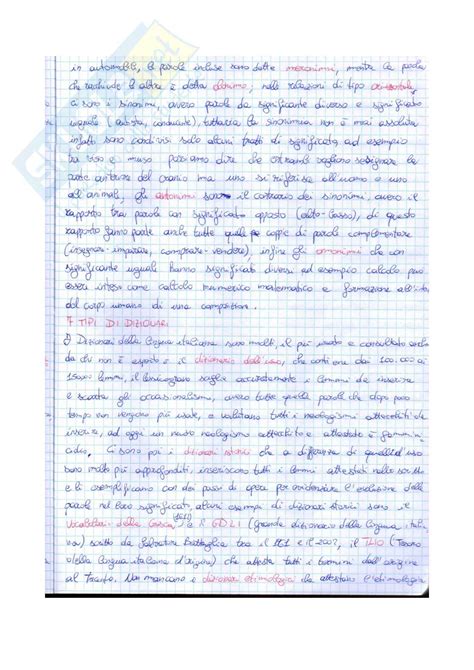 in automobile, le parole incluse sono dette meronimi, mentre la parola
che racchiude le altre è detta olonimo, nelle relazioni di tipo orizzontale
ci sono i sinonimi, ovvero parole da significante diverso e significato
uguale (autista, conducente), tuttavia la sinonimia non è mai assoluta
infatti sono condivisi solo alcuni tratti di significato, ad esempio
tra viso e muso possiamo dire che entrambi vogliono designare la
parte anteriore del cranio ma uno si riferisce all'uomo e uno
all'animale, gli antonimi sono il contrario dei sinonimi, ovvero il
rapporto tra parole con significato opposto (alto-basso), di questo
rapporto fanno parte anche tutte quelle coppie di parole complementari
(insegnare-imparare, comprare-vendere), infine gli omonimi che con
significante uguale hanno significati diversi ad esempio calcolo può
essere inteso come calcolo numerico matematico e formazione all'interno
del corpo umano di una
7 TIPI DI DIZIONARI
I Dizionari della lingua italiana sono molti, il più usato e consultato anche
da chi non è esperto è il dizionario dell'uso, che contiene dai 100.000 ai
lemmi, il lessicografo sceglie accuratamente i lemmi da inserire
e scarta gli occasionalismi, ovvero tutte quelle parole che dopo poco
tempo non vengono più usate, e valutano tutti i neologismi attecchiti da
inserire, ad oggi un nuovo neologismo attecchito e attestato è femmini-
cidio. Ci sono poi i dizionari storici che a differenza di quelli d'uso
sono molto più approfonditi, inseriscono tutti i lemmi attestati nelle scritture
e li esemplificano con dei passi di opera per evidenziare l'evoluzione delle
parole nel loro significato, alcuni esempi di dizionari storici sono il
Vocabolario della Crusca (1612) e il GDLI (grande dizionario della lingua italia
na) scritto da Salvatore Battaglia tra il 1961 e il 2002, il TLIO (Tesoro
della lingua italiana d'origine) che attesta tutti i termini dall'origine
al Trecento. Non mancano i dizionari etimologici che attestano l'etimologia